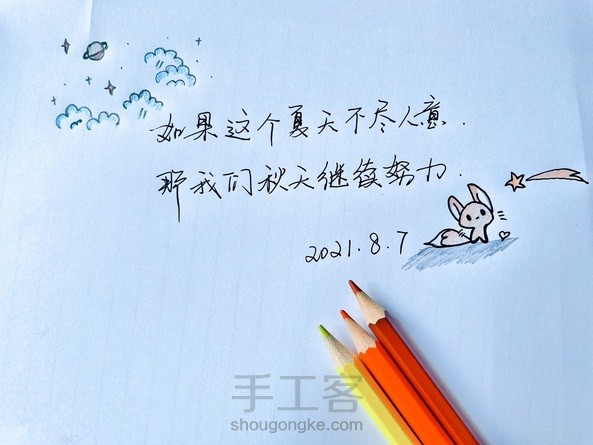 如果这个夏天不尽人意.
那我们秋天继续努力.
2021.8.7
手工客
shougongke.com